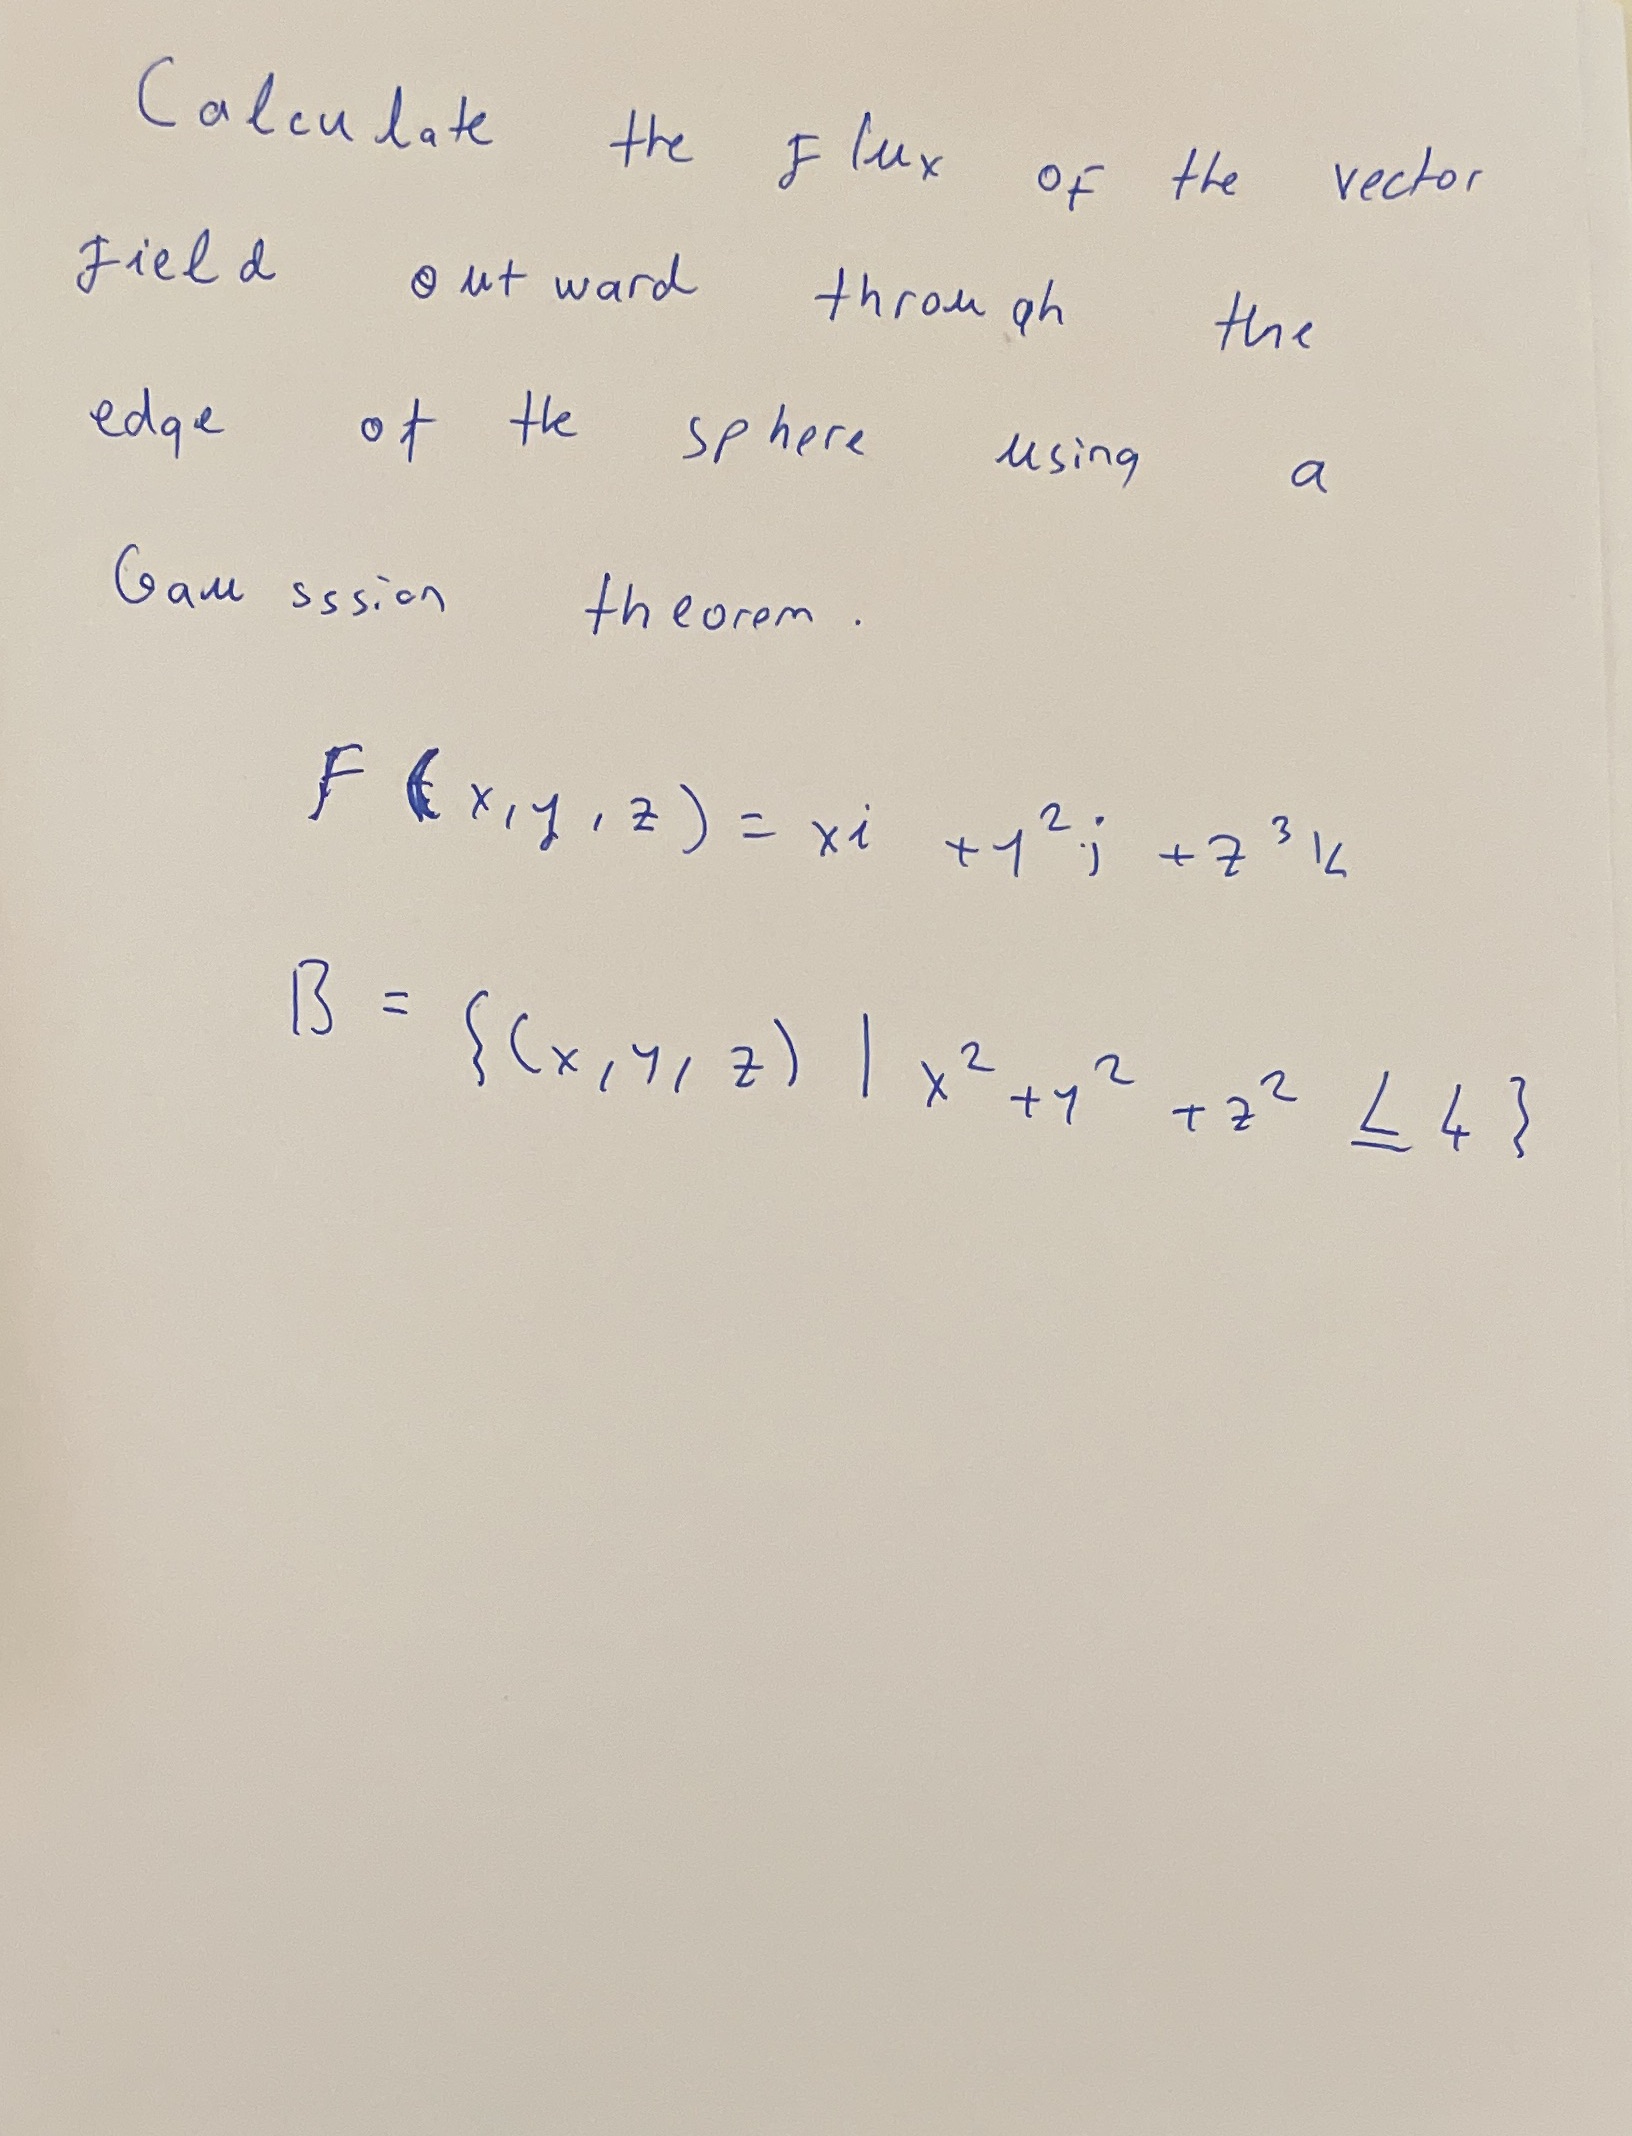 Calculate the flux of the vector
field outward through the
edge of the sphere using a
Gausssian theorem.
F(x,y,z) = xi + y²j + z³k
B = {(x,y,z) | x² + y² + z² ≤ 4}